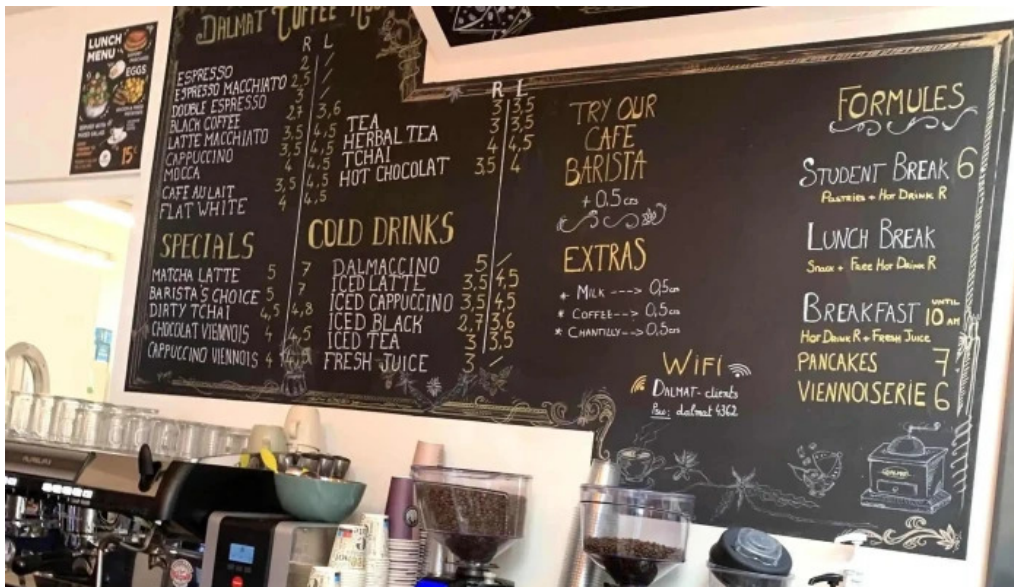 DALMAT COFFEE
LUNCH
MENU
EGGS
15
R L
ESPRESSO 2 /
ESPRESSO MACCHIATO 2,5 /
DOUBLE ESPRESSO 3 /
BLACK COFFEE 2,7 3,6
LATTE MACCHIATO 3,5 4,5
CAPPUCCINO 3,5 4,5
MOCCA 4 4,5
CAFE AU LAIT 3,5 4,5
FLAT WHITE 4 4,5
SPECIALS
MATCHA LATTE 5 7
BARISTA'S CHOICE 5 7
DIRTY TCHAI 4,5 4,8
CHOCOLAT VIENNOIS 4 4,5
CAPPUCCINO VIENNOIS 4 4,5
R L
TEA 3 3,5
HERBAL TEA 3 3,5
TCHAI 4 4,5
HOT CHOCOLAT 3,5 4
COLD DRINKS
DALMACCINO 5 /
ICED LATTE 3,5 4,5
ICED CAPPUCCINO 3,5 4,5
ICED BLACK 2,7 3,6
ICED TEA 3 3,5
FRESH-JUICE 3 /
TRY OUR
CAFE
BARISTA
+ 0.5cm
EXTRAS
* MILK ---> 0,5cm
* COFFEE---> 0,5cm
* CHANTILLY--> 0,5cm
WiFi
DALMAT-clients
Psw: dalmat4362
FORMULES
STUDENT BREAK 6
PASTRIES + HOT DRINK R
LUNCH BREAK
SNACK + FREE HOT DRINK R
BREAKFAST UNTIL 10 AM
HOT DRINK R + FRESH JUICE
PANCAKES 7
VIENNOISERIE 6